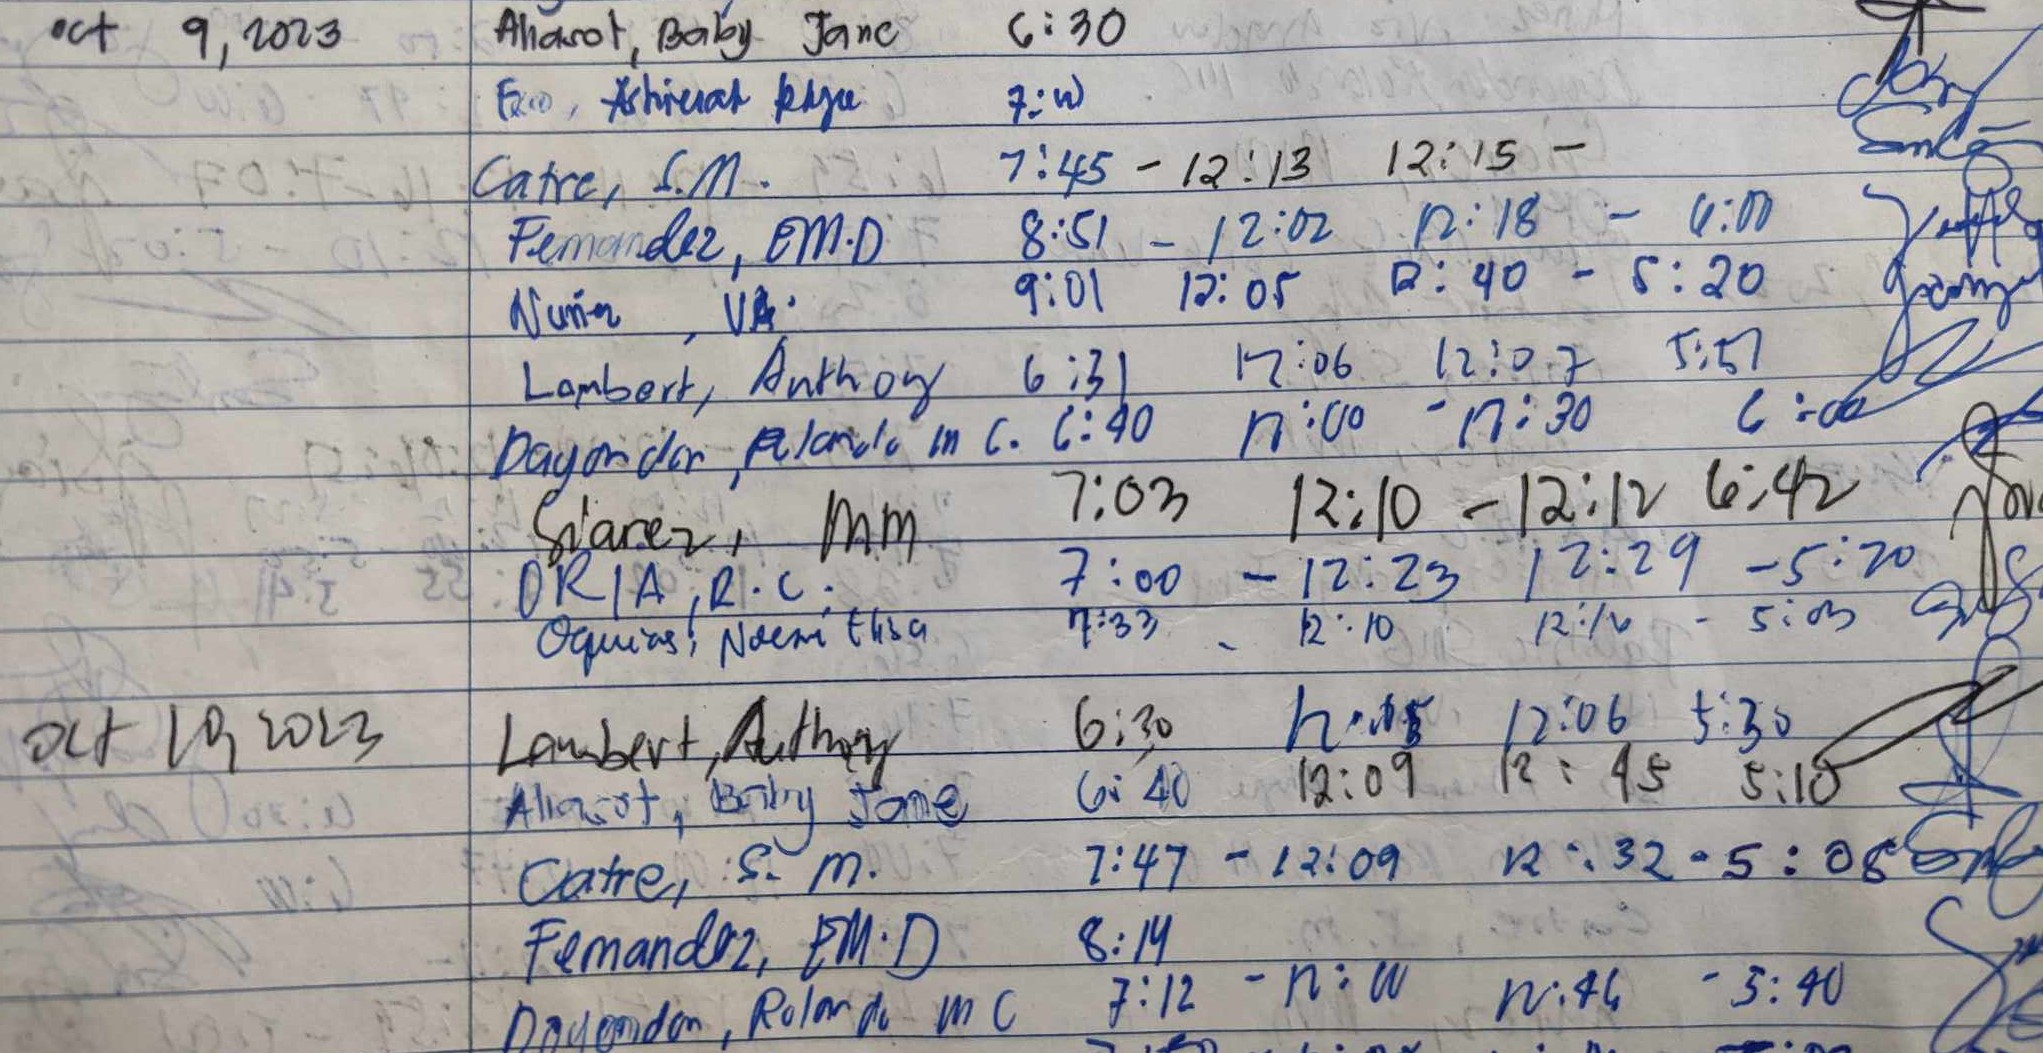 oct 9, 2023 Aliasot, Baby Jane 6:30
7:00
Catre, S.M. 7:45 - 12:13 12:15 -
Fernandez, EM.D 8:51 - 12:02 12:18 - 6:00
Nuñez, VA. 9:01 12:05 12:40 - 5:20
Lambert, Anthony 6:31 12:06 12:07 5:51
Dayondon, Rolando m C. 6:40 12:00 - 12:30 6:00
Suarez, MM 7:03 12:10 - 12:12 6:42
ORIA, R.C. 7:00 - 12:23 12:29 - 5:20
Oquias, Noemi Elisa 7:33 - 12:10 - 5:03
oct 10, 2023 Lambert, Anthony 6:30 12:06 5:30
Aliasot, Baby Jane 6:40 12:09 12:45 5:10
Catre, S. M. 7:47 - 12:09 12:32 - 5:05
Fernandez, EM.D 8:14
Dayondon, Rolando m C 7:12 - 12:00 12:46 - 5:40